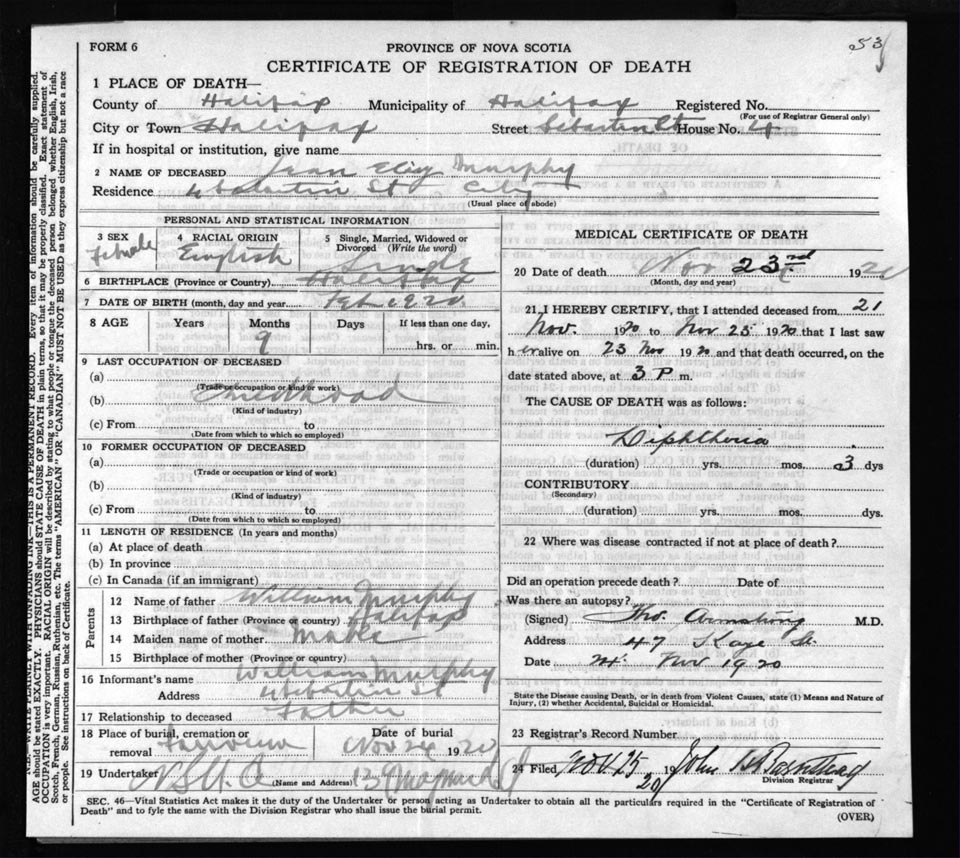 FORM 6
PROVINCE OF NOVA SCOTIA
53
CERTIFICATE OF REGISTRATION OF DEATH
1 PLACE OF DEATH—
County of Halifax Municipality of Halifax Registered No.
(For use of Registrar General only)
City or Town Halifax Street House No. 4
If in hospital or institution, give name
2 NAME OF DECEASED Jean Murphy
Residence 4 St City
(Usual place of abode)
PERSONAL AND STATISTICAL INFORMATION
3 SEX Female
4 RACIAL ORIGIN English
5 Single, Married, Widowed or Divorced (Write the word) Single
6 BIRTHPLACE (Province or Country) Halifax
7 DATE OF BIRTH (month, day and year) Feb 1920
8 AGE Years Months Days If less than one day,
9 hrs. or min.
9 LAST OCCUPATION OF DECEASED
(a)
(Trade or occupation or kind of work)
(b) Childhood
(Kind of industry)
(c) From to
(Date from which to which so employed)
10 FORMER OCCUPATION OF DECEASED
(a)
(Trade or occupation or kind of work)
(b)
(Kind of industry)
(c) From to
(Date from which to which so employed)
11 LENGTH OF RESIDENCE (In years and months)
(a) At place of death
(b) In province
(c) In Canada (if an immigrant)
Parents
12 Name of father William Murphy
13 Birthplace of father (Province or country) Halifax
14 Maiden name of mother
15 Birthplace of mother (Province or country)
16 Informant's name William Murphy
Address 4 St
17 Relationship to deceased Father
18 Place of burial, cremation or removal Fairview Date of burial Nov 24 1920
19 Undertaker (Name and Address)
MEDICAL CERTIFICATE OF DEATH
20 Date of death Nov 23rd 1920
(Month, day and year)
21 I HEREBY CERTIFY, that I attended deceased from 21
Nov. 1920 to Nov 23 1920 that I last saw
her alive on 23 Nov 1920 and that death occurred, on the
date stated above, at 3 P m.
The CAUSE OF DEATH was as follows:
Diphtheria
(duration) yrs. mos. 3 dys
CONTRIBUTORY
(Secondary)
(duration) yrs. mos. dys.
22 Where was disease contracted if not at place of death?
Did an operation precede death? Date of
Was there an autopsy?
(Signed) Tho. Armstrong M.D.
Address 47 Kaye St.
Date 24 Nov 1920
State the Disease causing Death, or in death from Violent Causes, state (1) Means and Nature of
Injury, (2) whether Accidental, Suicidal or Homicidal.
23 Registrar's Record Number
24 Filed NOV 25 1920 John
Division Registrar
SEC. 46—Vital Statistics Act makes it the duty of the Undertaker or person acting as Undertaker to obtain all the particulars required in the "Certificate of Registration of
Death" and to fyle the same with the Division Registrar who shall issue the burial permit.
(OVER)
WRITE PLAINLY WITH UNFADING INK—THIS IS A PERMANENT RECORD. Every item of information should be carefully supplied.
AGE should be stated EXACTLY. PHYSICIANS should STATE CAUSE OF DEATH in plain terms, so that it may be properly classified. Exact statement of
OCCUPATION is very important. RACIAL ORIGIN will be described by stating to what people or tongue the deceased person belonged whether English, Irish,
Scotch, French, German, Russian, Ruthenian, etc. The terms "AMERICAN" OR "CANADIAN" MUST NOT BE USED as they express citizenship but not a race
or people. See instructions on back of Certificate.